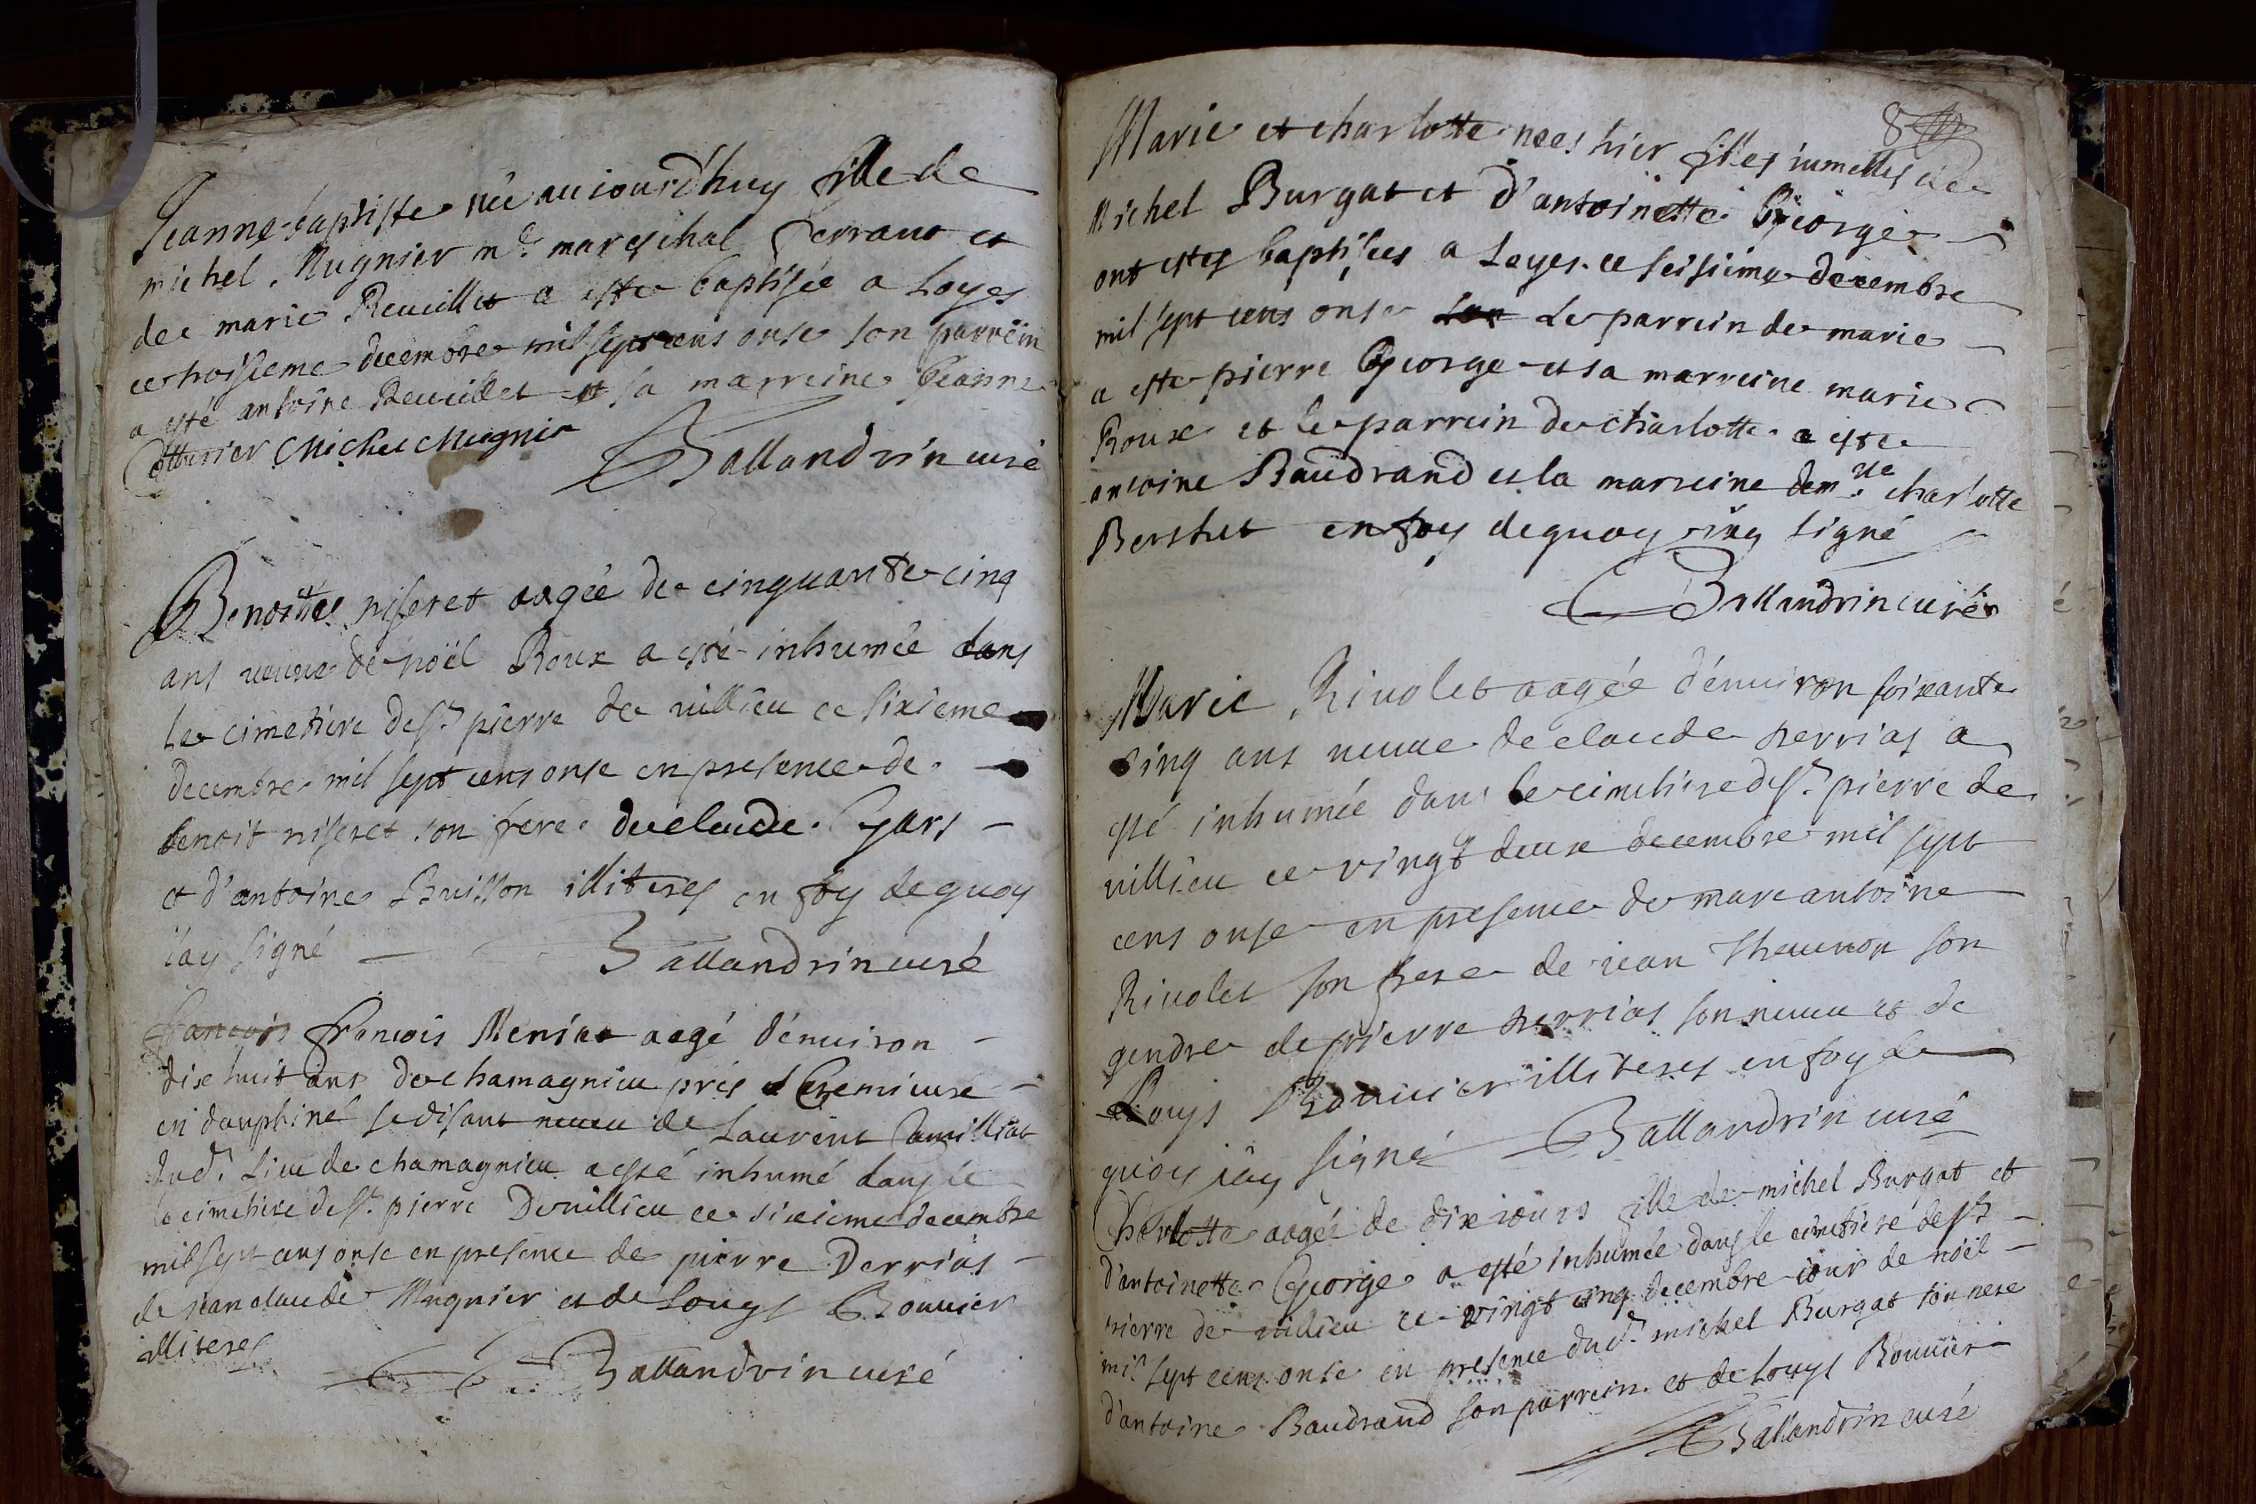 Jeanne-baptiste née auiourd'huy fille de
michel Mugnier md. mareschal ferrant et
de marie Reuillet a este baptisée a Loyes
ce troisieme decembre mil sept cens onse son parrein
a esté antoine Reuillet et sa marreine Jeanne
Michel Mugnier
Ballandrin curé
Benoitte niseret aagée de cinquante cinq
ans veuve de noël Roux a esté inhumée dans
le cimetiere de st. pierre de villieu ce sixieme
decembre mil sept cens onse en presence de
benoit niseret son frere de claude Gars
et d'antoine Buisson illiteres en foy de quoy
i'ay signé
Ballandrin curé
francois francois Meniat aagé d'enuiron
dix huit ans de chamagnieu près Cremieure
en dauphiné se disant neueu de Laurent
dud. lieu de chamagnieu a esté inhumé dans le
le cimetiere de st. pierre De villieu ce sixieme decembre
mil sept cens onse en presence de pierre Derrias
de Jean claude Mugnier et de Louys Bouuier
illiteres
Ballandrin curé
8
Marie et charlotte nées hier filles iumelles de
Michel Burgat et d'antoinette George
ont estés baptisées a Loyes ce seisieme decembre
mil sept cens onse son Le parrein de marie
a este pierre George et sa marreine marie
Roux et le parrein de charlotte a este
antoine Baudrand et la marreine demlle. charlotte
Berthet en foy de quoy i'ay signé
Ballandrin curé
Marie Riuolet aagée d'enuiron soixante
cinq ans veuue de claude perrias a
esté inhumée dans le cimetiere de st. pierre de
villieu ce vingt deux decembre mil sept
cens onse en presence de marc antoine
Riuolet son frere de iean Theuenon son
gendre de pierre perrias son neueu et de
Louys Bouuier illiteres en foy de
quoy i'ay signé Ballandrin curé
Charlotte aagée de dix iours fille de michel Burgat et
d'antoinette George a esté inhumée dans le cimetiere de st.
pierre de villieu ce vingt cinq decembre iour de noël
mil sept cens onse en presence dud. michel Burgat son pere
d'antoine Baudrand son parrein et de Louys Bouuier
Ballandrin curé